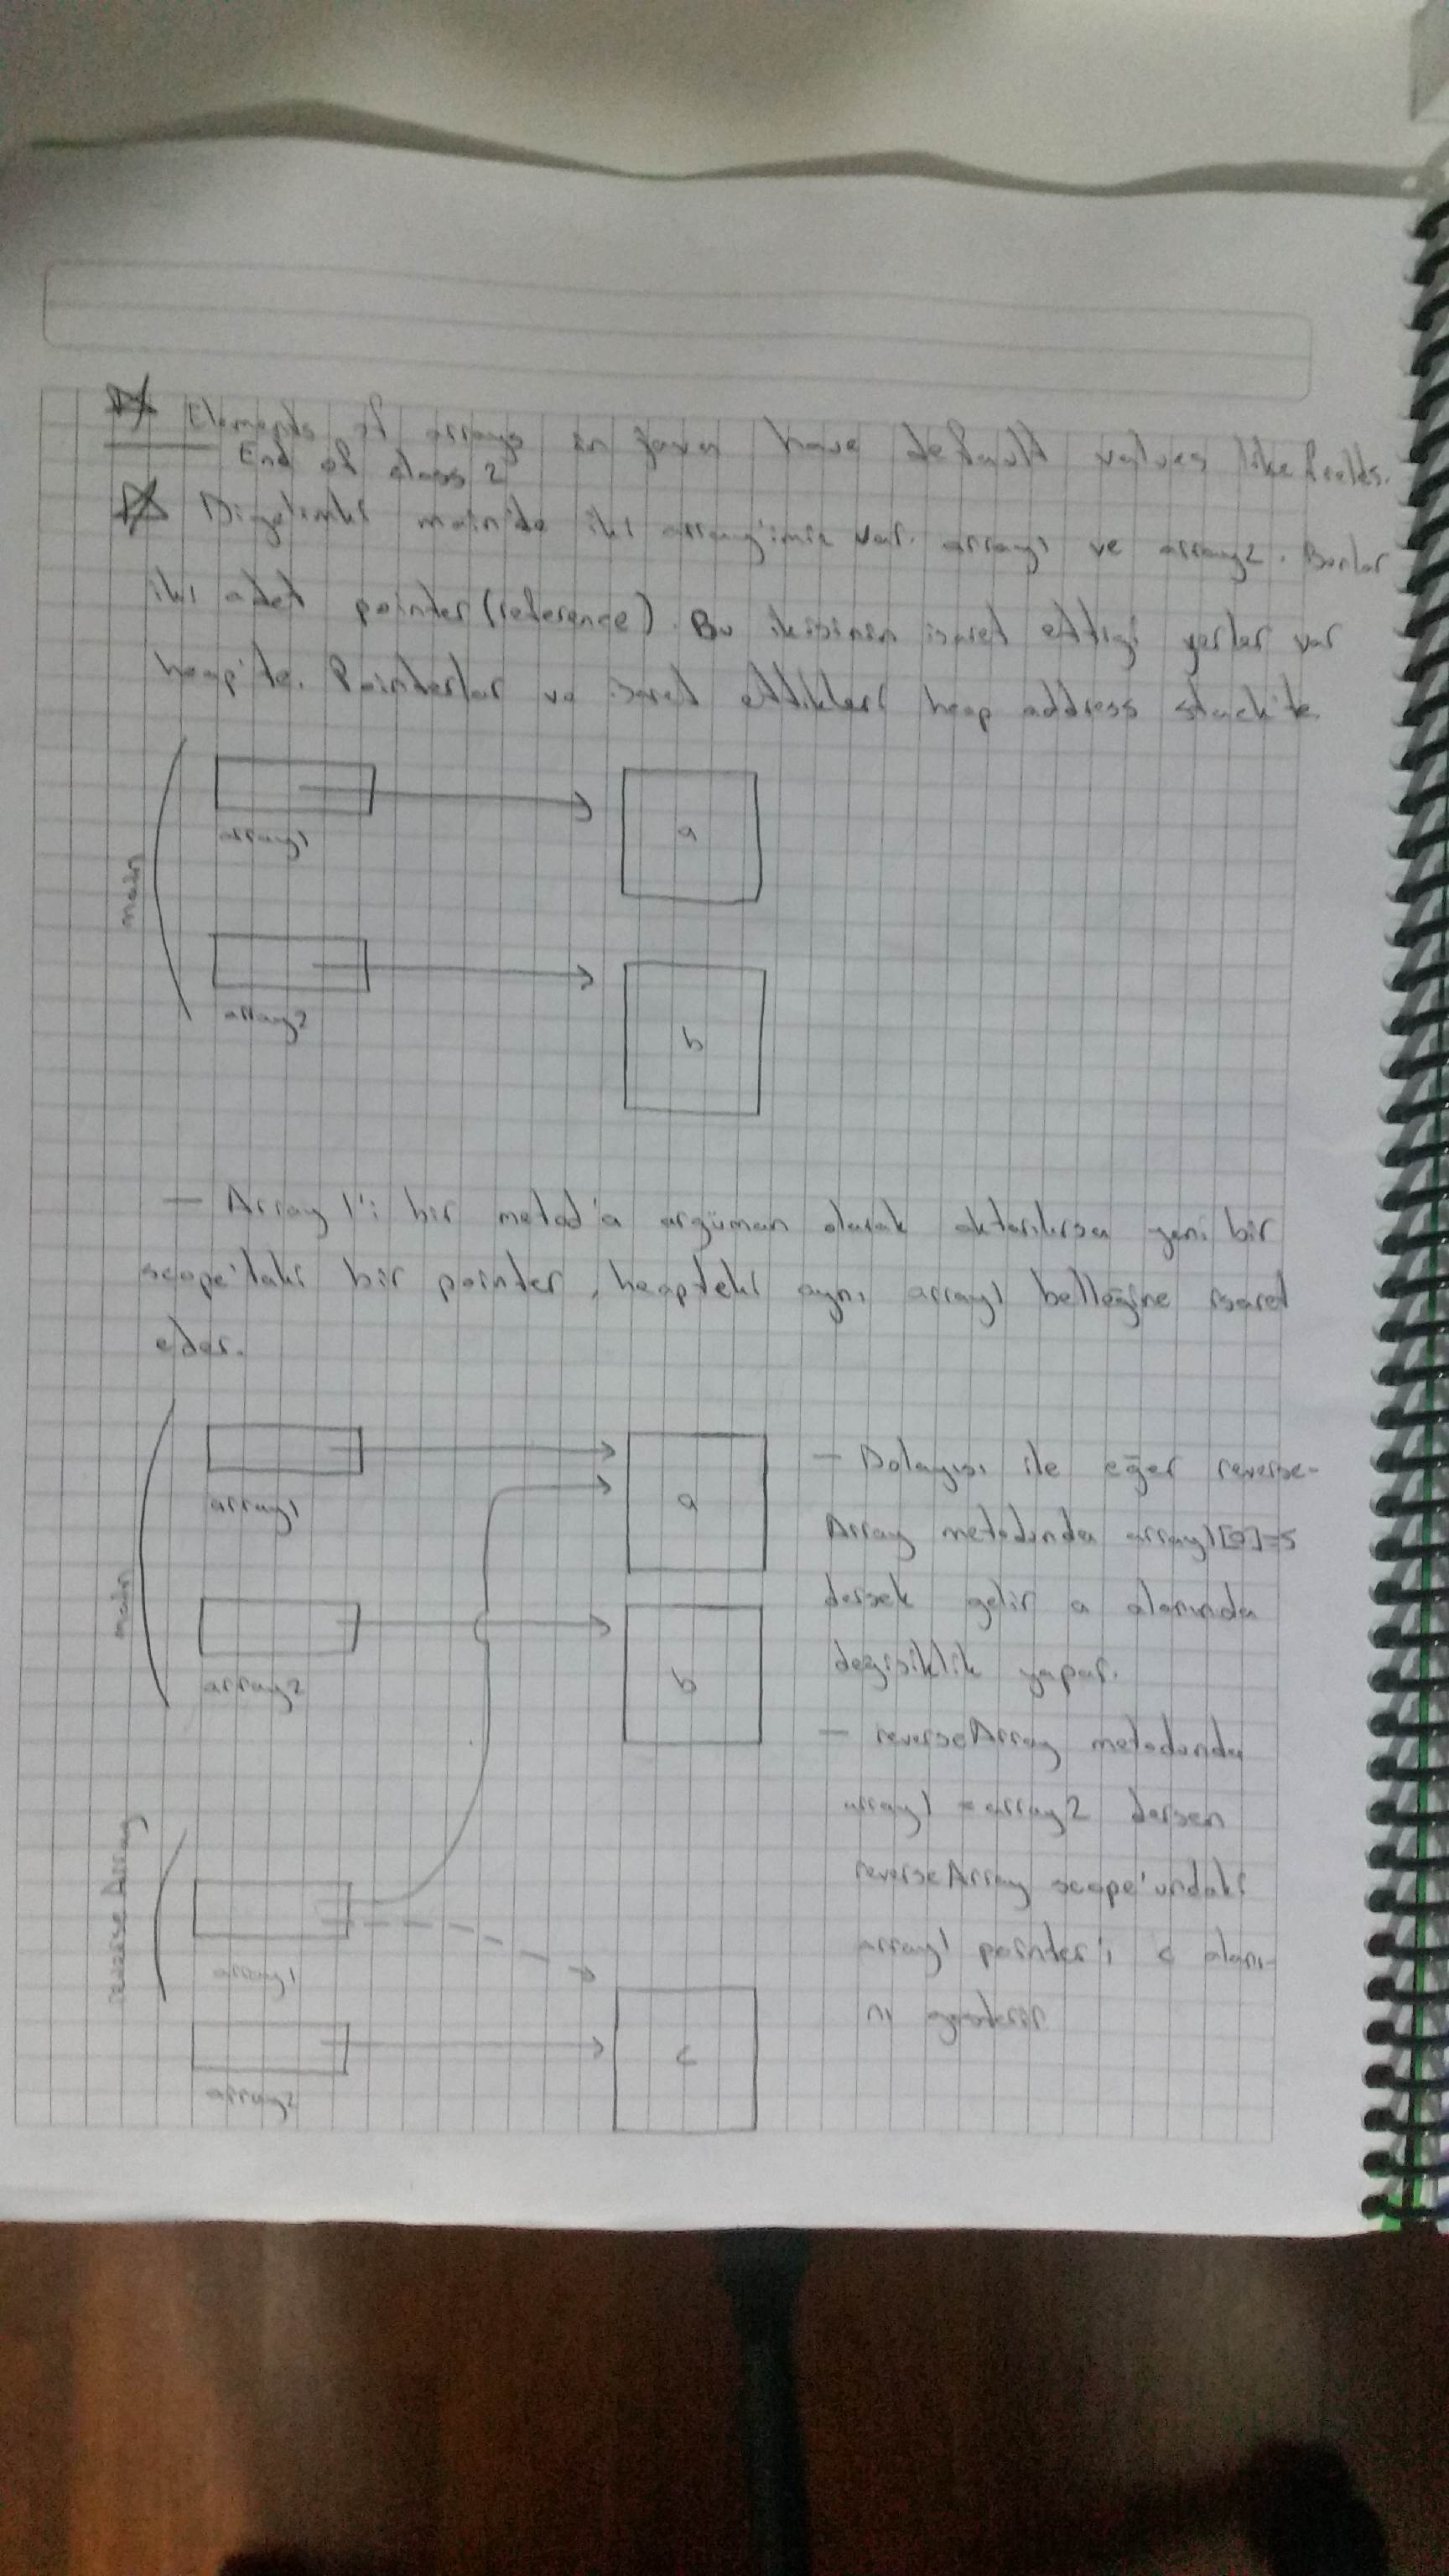 Elements of arrays in java have default values like fields.
End of class 2
Diyelimki main'de iki array'imiz var. array1 ve array2. Bunlar
iki adet pointer (reference). Bu ikisinin isaret ettigi yerler var
heap'te. Pointerlar ve isaret ettikleri heap address stack'te
array1
a
main
array2
b
— Array 1'i bir metod'a argüman olarak aktarılırsa yeni bir
scope'taki bir pointer, heapteki aynı array1 belleğine isaret
eder.
array1
a
main
array2
b
reverse Array
array1
array2
c
— Dolayısı ile eğer reverse-
Array metodunda array1[0]=5
dersek gelir a alanında
değisiklik yapar.
— reverseArray metodunda
array1 = array2 dersen
reverseArray scope'undaki
array1 pointer'i c alanı-
nı gösterir